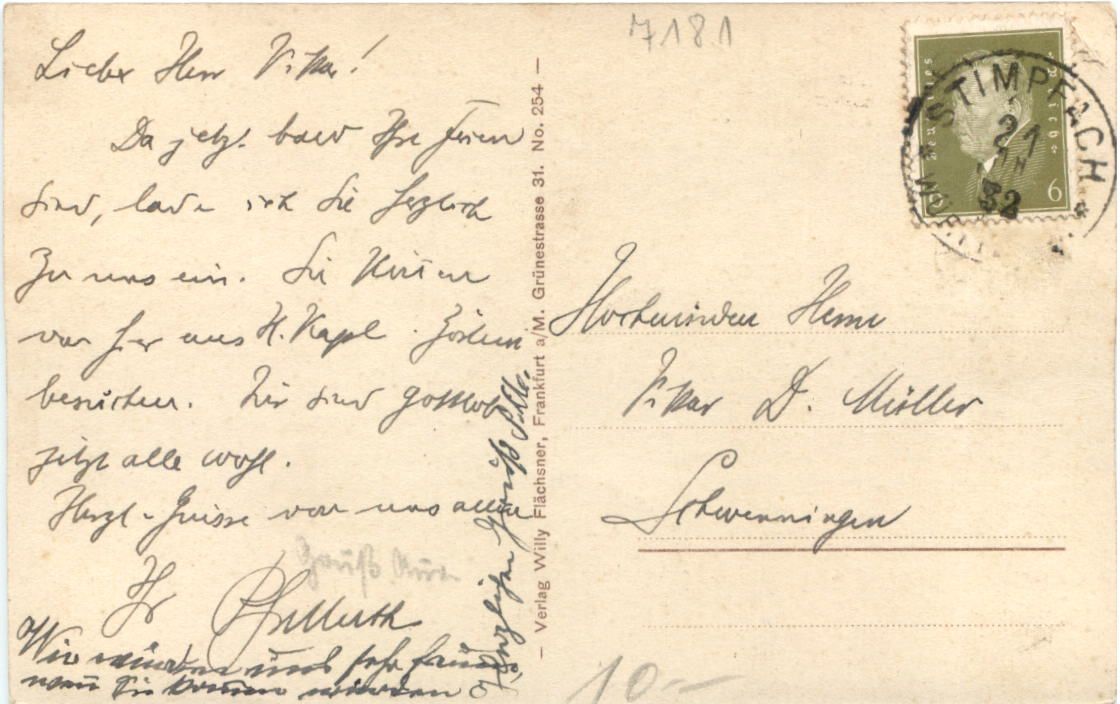 7181
Lieber Herr Vikar!
Da jetzt bald Ihre Ferien
sind, lade ich Sie herzlich
zu uns ein. Sie können
von hier aus H. Kapl.
besuchen. Wir sind gottlob
jetzt alle wohl.
Herzl. Grüsse von uns allen
Ihr
Gruß
Wir würden uns sehr freuen
wenn Sie kommen würden
Herzlichen Gruß
– Verlag Willy Flächsner, Frankfurt a/M. Grünestrasse 31. No. 254 –
Deutsches Reich
6
STIMPFACH
21
32
Hochwürden Herrn
Vikar D. Müller
Schwenningen
10.–